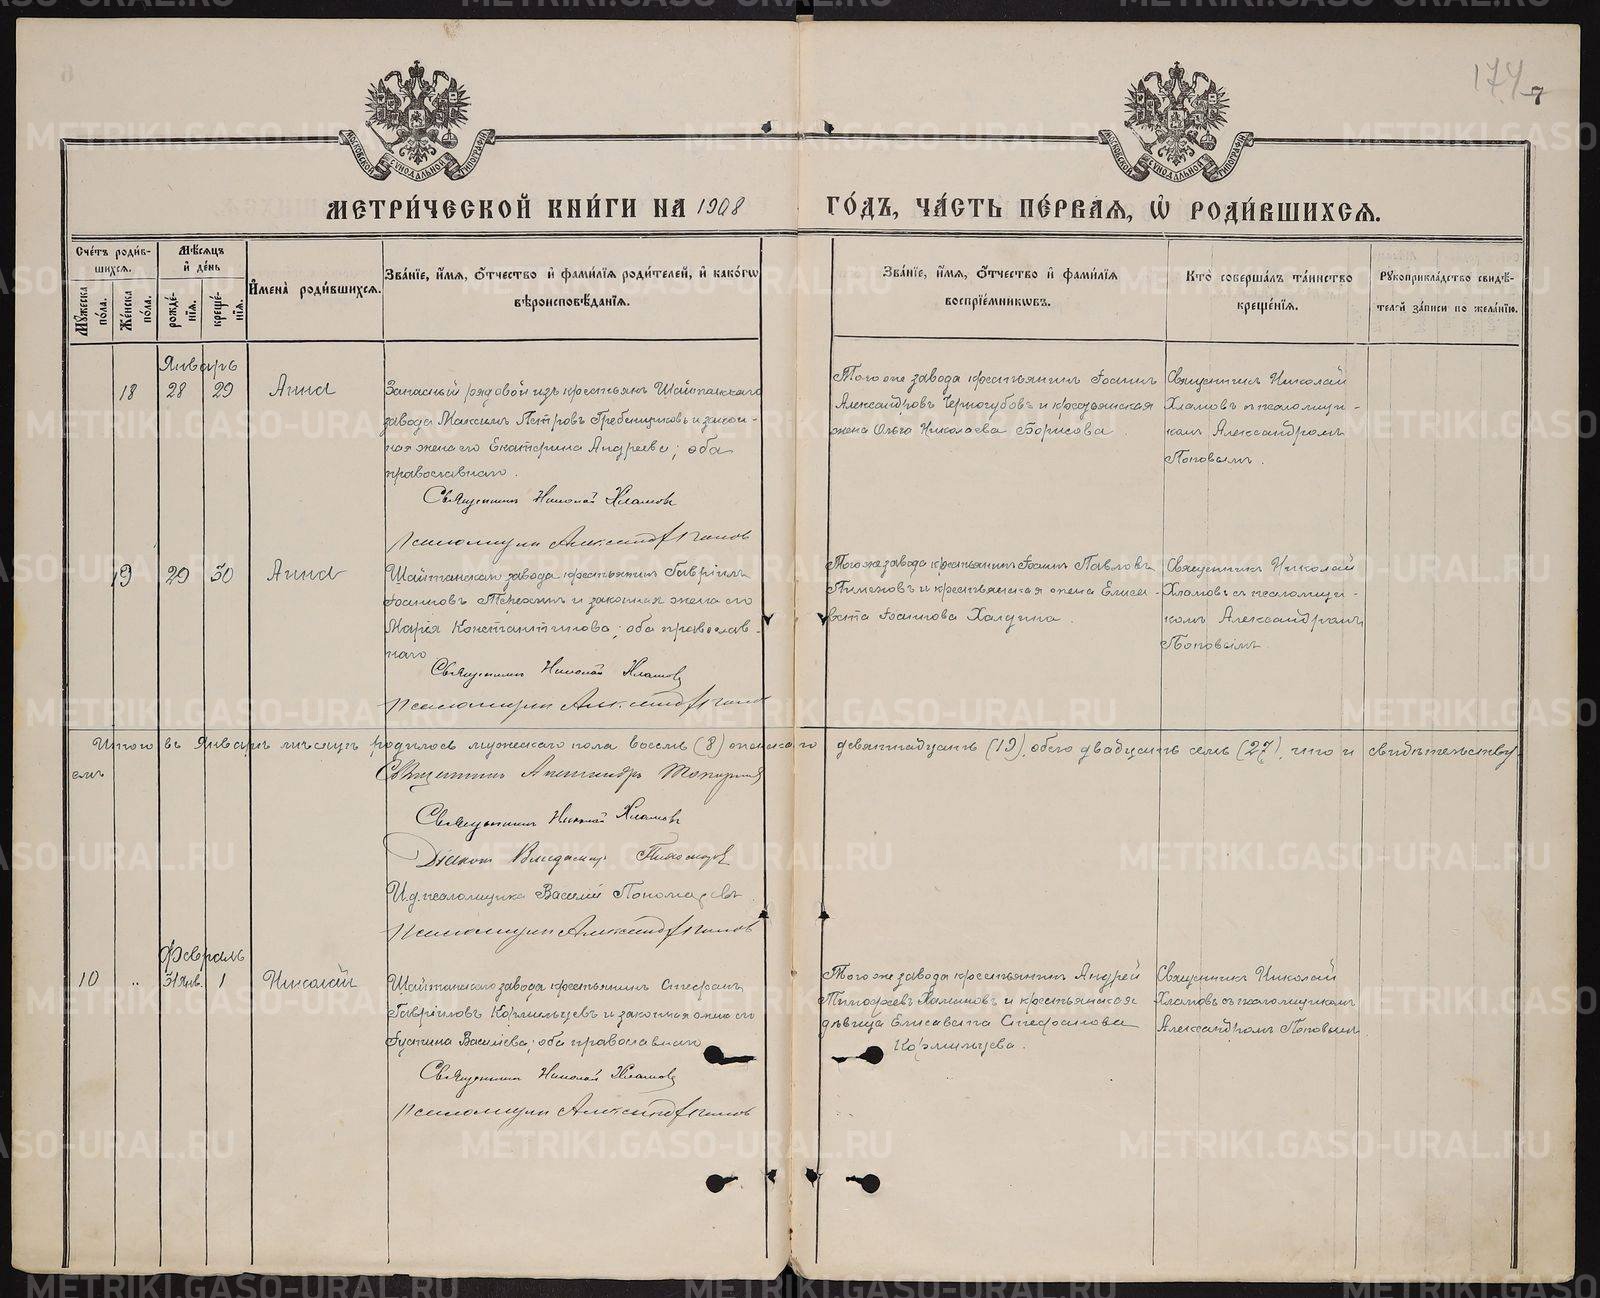 174 7
МОСКОВСКОЙ СУНОДАЛЬНОЙ ТИПОГРАФІИ
МОСКОВСКОЙ СУНОДАЛЬНОЙ ТИПОГРАФІИ
МЕТРИ́ЧЕСКОЙ КНИ́ГИ НА 1908
ГО́ДЪ, ЧА́СТЬ ПЕ́РВАЯ, Ѡ РОДИ́ВШИХСЯ.
Сче́тъ роди́в-
шихся.
Му́жеска по́ла.
Же́нска по́ла.
Мѣ́сяцъ
и де́нь
рожде́-
нїя.
креще́-
нїя.
И҆мена̀ роди́вшихся.
Зва́нїе, и҆́мя, ѻ҆́тчество и҆ фами́лїя роди́телей, и҆ како́гѡ
вѣроисповѣ́данїя.
Зва́нїе, и҆́мя, ѻ҆́тчество и҆ фами́лїя
воспрїе́мникѡвъ.
Кто̀ соверша́лъ та́инство
креще́нїя.
Рукоприкла́дство свидѣ́-
телей за́писи по жела́нїю.
Январь
18 28 29 Анна
Запасный рядовой изъ крестьянъ Шайтанскаго
завода Максимъ Петровъ Гребенщиковъ и закон-
ная жена его Екатерина Андреева; оба
православнаго.
Священникъ Николай Хламовъ
Псаломщикъ Александръ Поповъ
Того же завода крестьянинъ Іоаннъ
Александровъ Черногубовъ и крестьянская
жена Ольга Николаева Борисова
Священникъ Николай
Хламовъ съ псаломщи-
комъ Александромъ
Поповымъ.
19 29 30 Анна
Шайтанскаго завода крестьянинъ Гавріилъ
Іоанновъ и законная жена его
Марія Константинова; оба православ-
наго
Священникъ Николай Хламовъ
Псаломщикъ Александръ Поповъ
Того же завода крестьянинъ Іоаннъ Павловъ
Пименовъ и крестьянская жена Елиса-
вета Іоаннова Халдина.
Священникъ Николай
Хламовъ съ псаломщи-
комъ Александромъ
Поповымъ.
Итого въ Январѣ мѣсяцѣ родилось мужескаго пола восемь (8) женскаго девятнадцать (19), обоего двадцать семь (27), что и свидѣтельству-
емъ
Священникъ Александръ Топорковъ
Священникъ Николай Хламовъ
Діаконъ Владимиръ
И.д. псаломщика Василій Пономаревъ
Псаломщикъ Александръ Поповъ
Февраль
10 " 31 Янв. 1 Николай
Шайтанскаго завода крестьянинъ Стефанъ
Гавріиловъ Кормильцевъ и законная жена его
Іустина Васильева; оба православнаго
Священникъ Николай Хламовъ
Псаломщикъ Александръ Поповъ
Того же завода крестьянинъ Андрей
Тимофеевъ Халдиновъ и крестьянская
дѣвица Елисавета Стефанова
Кормильцева.
Священникъ Николай
Хламовъ съ псаломщикомъ
Александромъ Поповымъ
METRIKI.GASO-URAL.RU